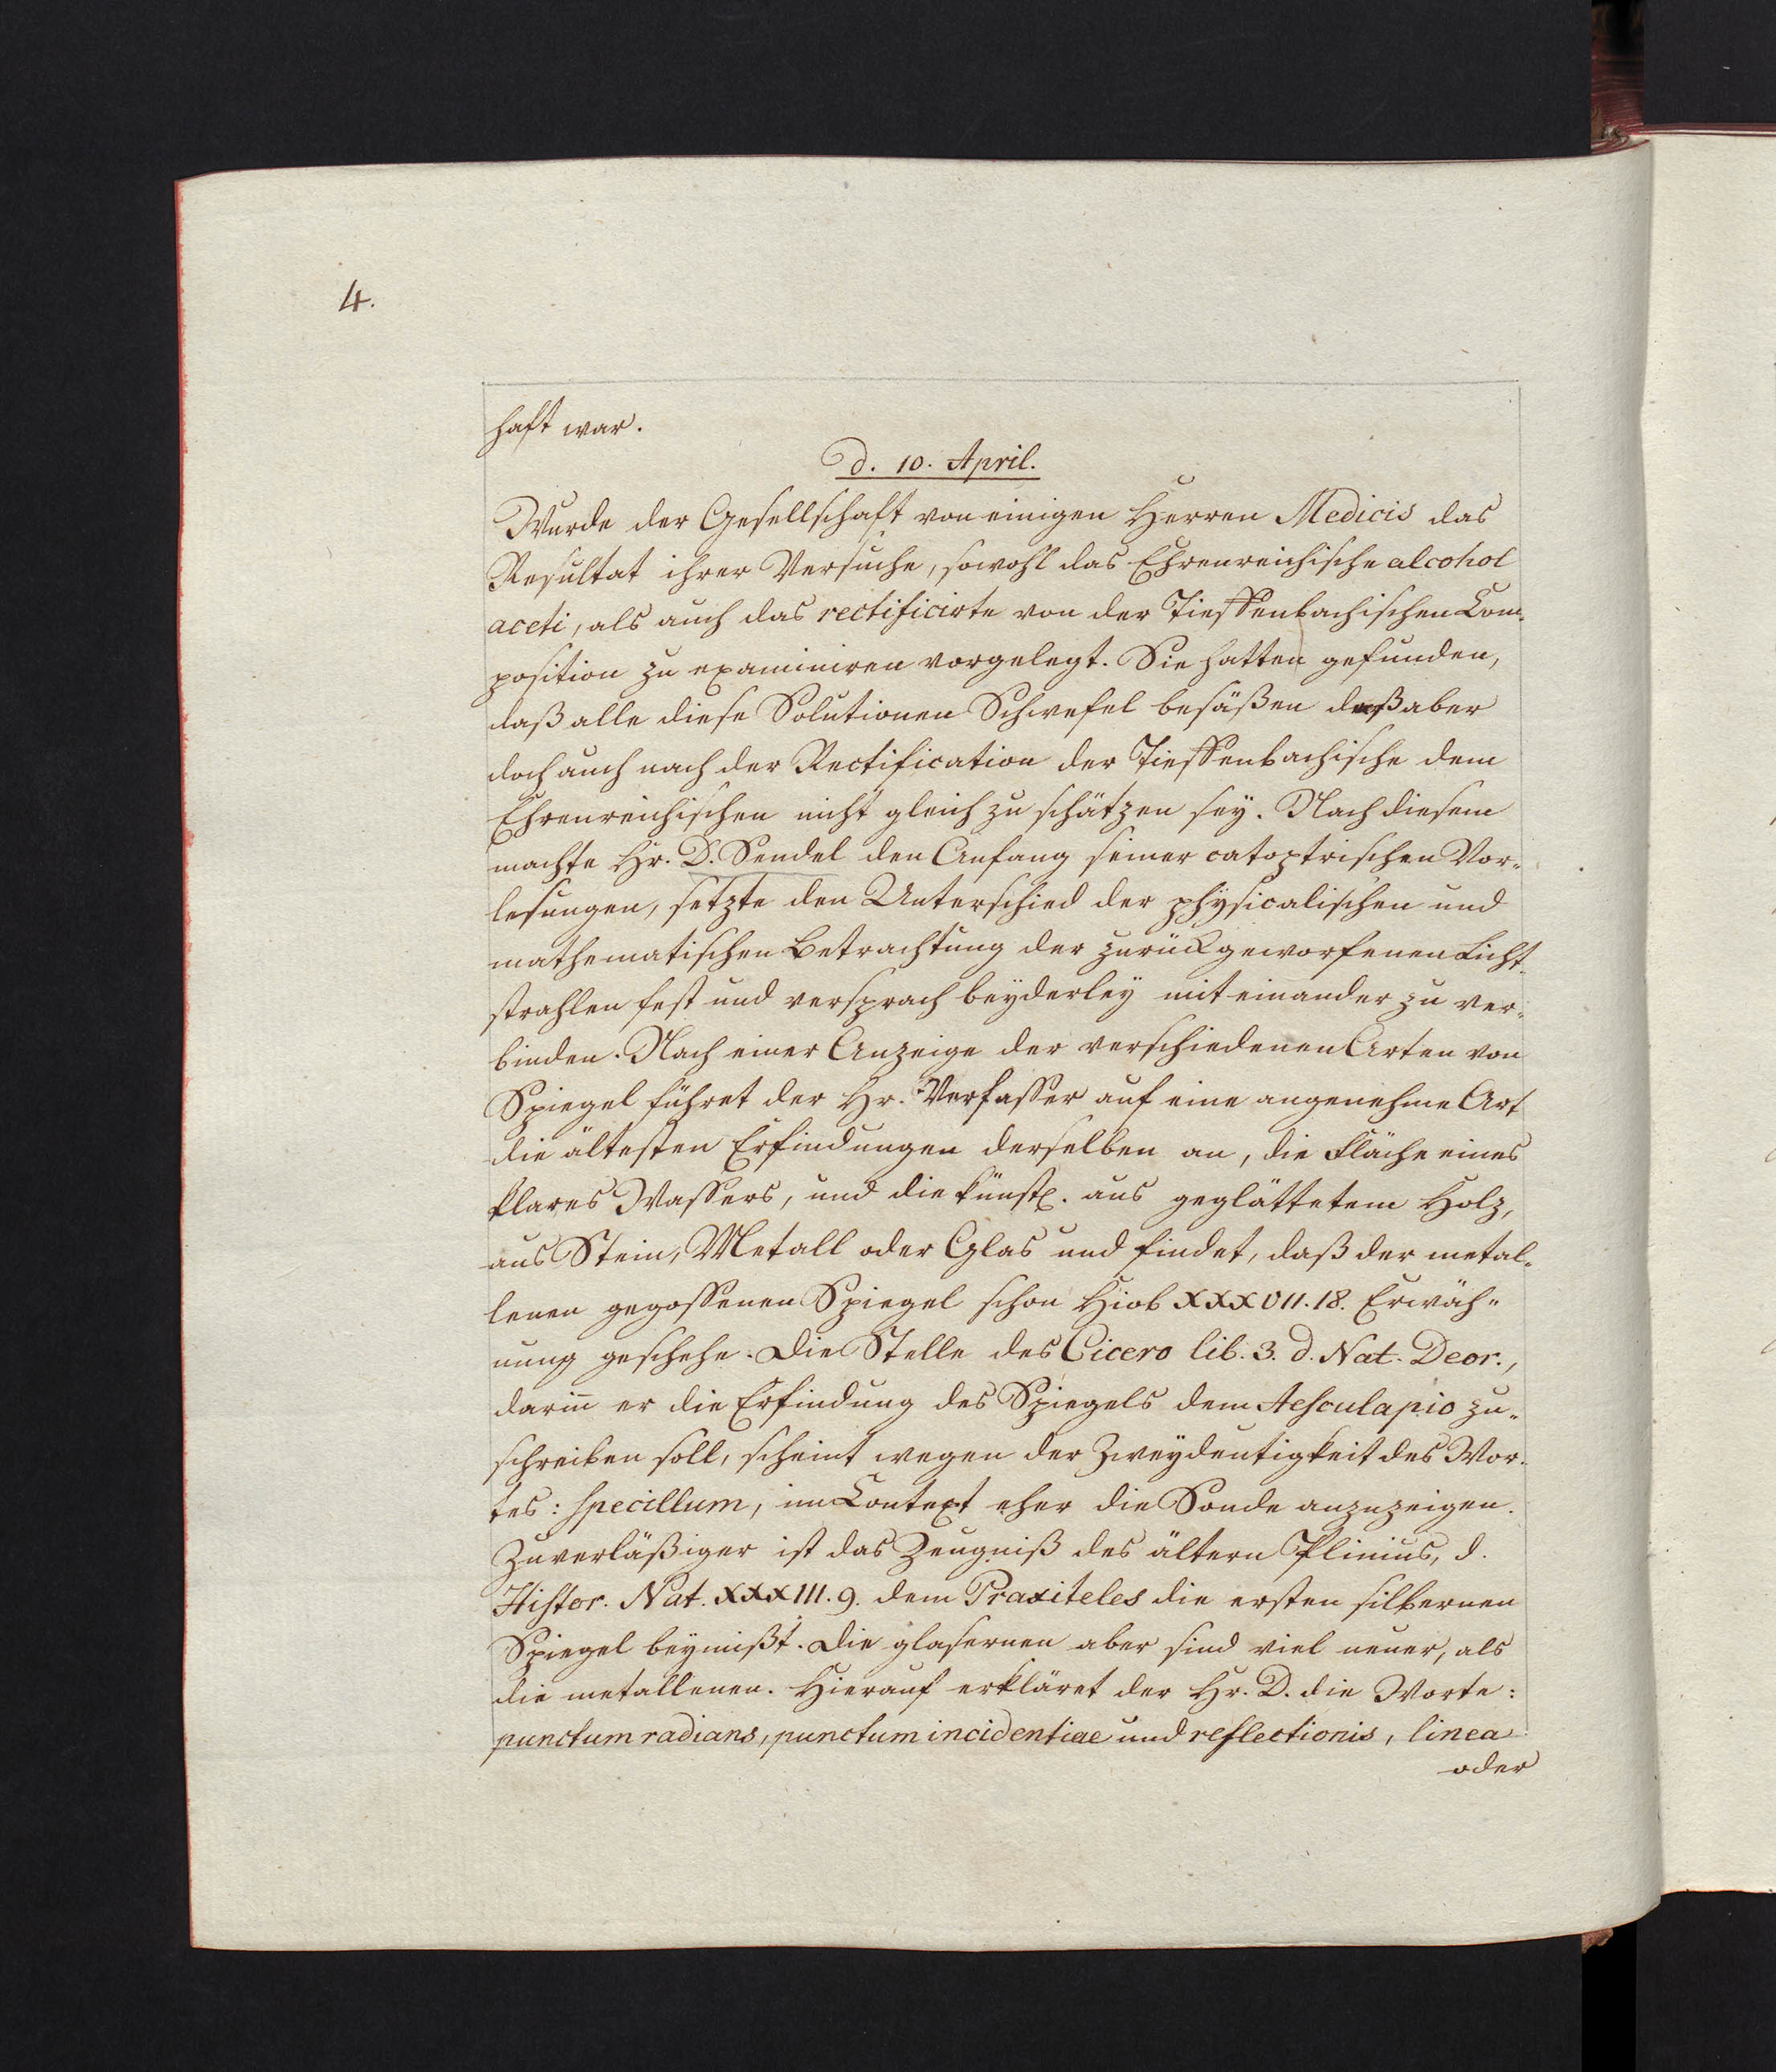 4.
haft war.
d. 10. April.
Wurde der Gesellschaft von einigen Herren Medicis das
Resultat ihrer Versuche, sowohl das Ehrenreichische alcohol
aceti, als auch das rectificirte von der Tieffenbachischen Com-
position zu examiniren vorgelegt. Sie hatten gefunden,
daß alle diese Solutionen Schwefel besäßen daß aber
doch auch nach der Rectification der Tieffenbachische dem
Ehrenreichischen nicht gleich zu schätzen sey. Nach diesem
machte Hr. D. Sendel den Anfang seiner catoptrischen Vor-
lesungen, setzte den Unterschied der physicalischen und
mathematischen Betrachtung der zurückgeworfenen Licht-
strahlen fest und versprach beyderley mit einander zu ver-
binden. Nach einer Anzeige der verschiedenen Arten von
Spiegel führet der Hr. Verfasser auf eine angenehme Art
die ältesten Erfindungen derselben an, die Fläche eines
klares Wassers, und die künstl. aus geglättetem Holz,
aus Stein, Metall oder Glas und findet, daß der metal-
lenen gegossenen Spiegel schon Hiob XXXVII. 18. Erwäh-
nung geschehe. Die Stelle des Cicero lib. 3. d. Nat. Deor.,
darin̄ er die Erfindung des Spiegels dem Aesculapio zu-
schreiben soll, scheint wegen der Zweydeutigkeit des Wor-
tes: specillum, im Context eher die Sonde anzuzeigen.
Zuverläßiger ist das Zeugniß des ältern Plinius, d.
Histor. Nat. XXXIII. 9. dem Praxiteles die ersten silbernen
Spiegel beymißt. Die glasernen aber sind viel neuer, als
die metallenen. Hierauf erkläret der Hr. D. die Worte:
punctum radians, punctum incidentiae und reflectionis, linea
oder